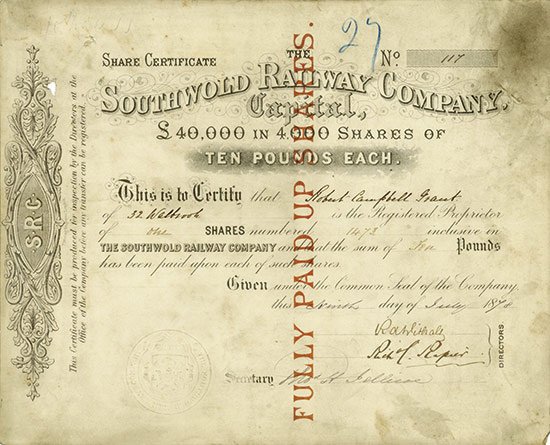 27
SHARE CERTIFICATE THE No 117
SOUTHWOLD RAILWAY COMPANY.
Capital,
£40,000 IN 4,000 SHARES OF
TEN POUNDS EACH.
This is to Certify that Robert Campbell Grant
of 32 Walbrook is the Registered Proprietor
of one SHARES numbered 1473 inclusive in
THE SOUTHWOLD RAILWAY COMPANY and that the sum of Ten Pounds
has been paid upon each of such shares.
Given under the Common Seal of the Company,
this Ninth day of July 1878
Richd C. Rapier
DIRECTORS
Secretary
FULLY PAID UP SHARES.
S R C
This Certificate must be produced for inspection by the Directors at the
Office of the Company before any transfer can be registered.